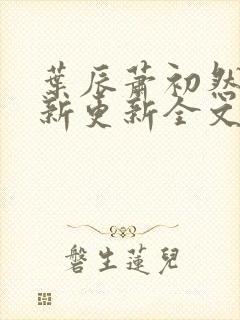 葉辰蕭初然
新更新全文
磐生蓮兒